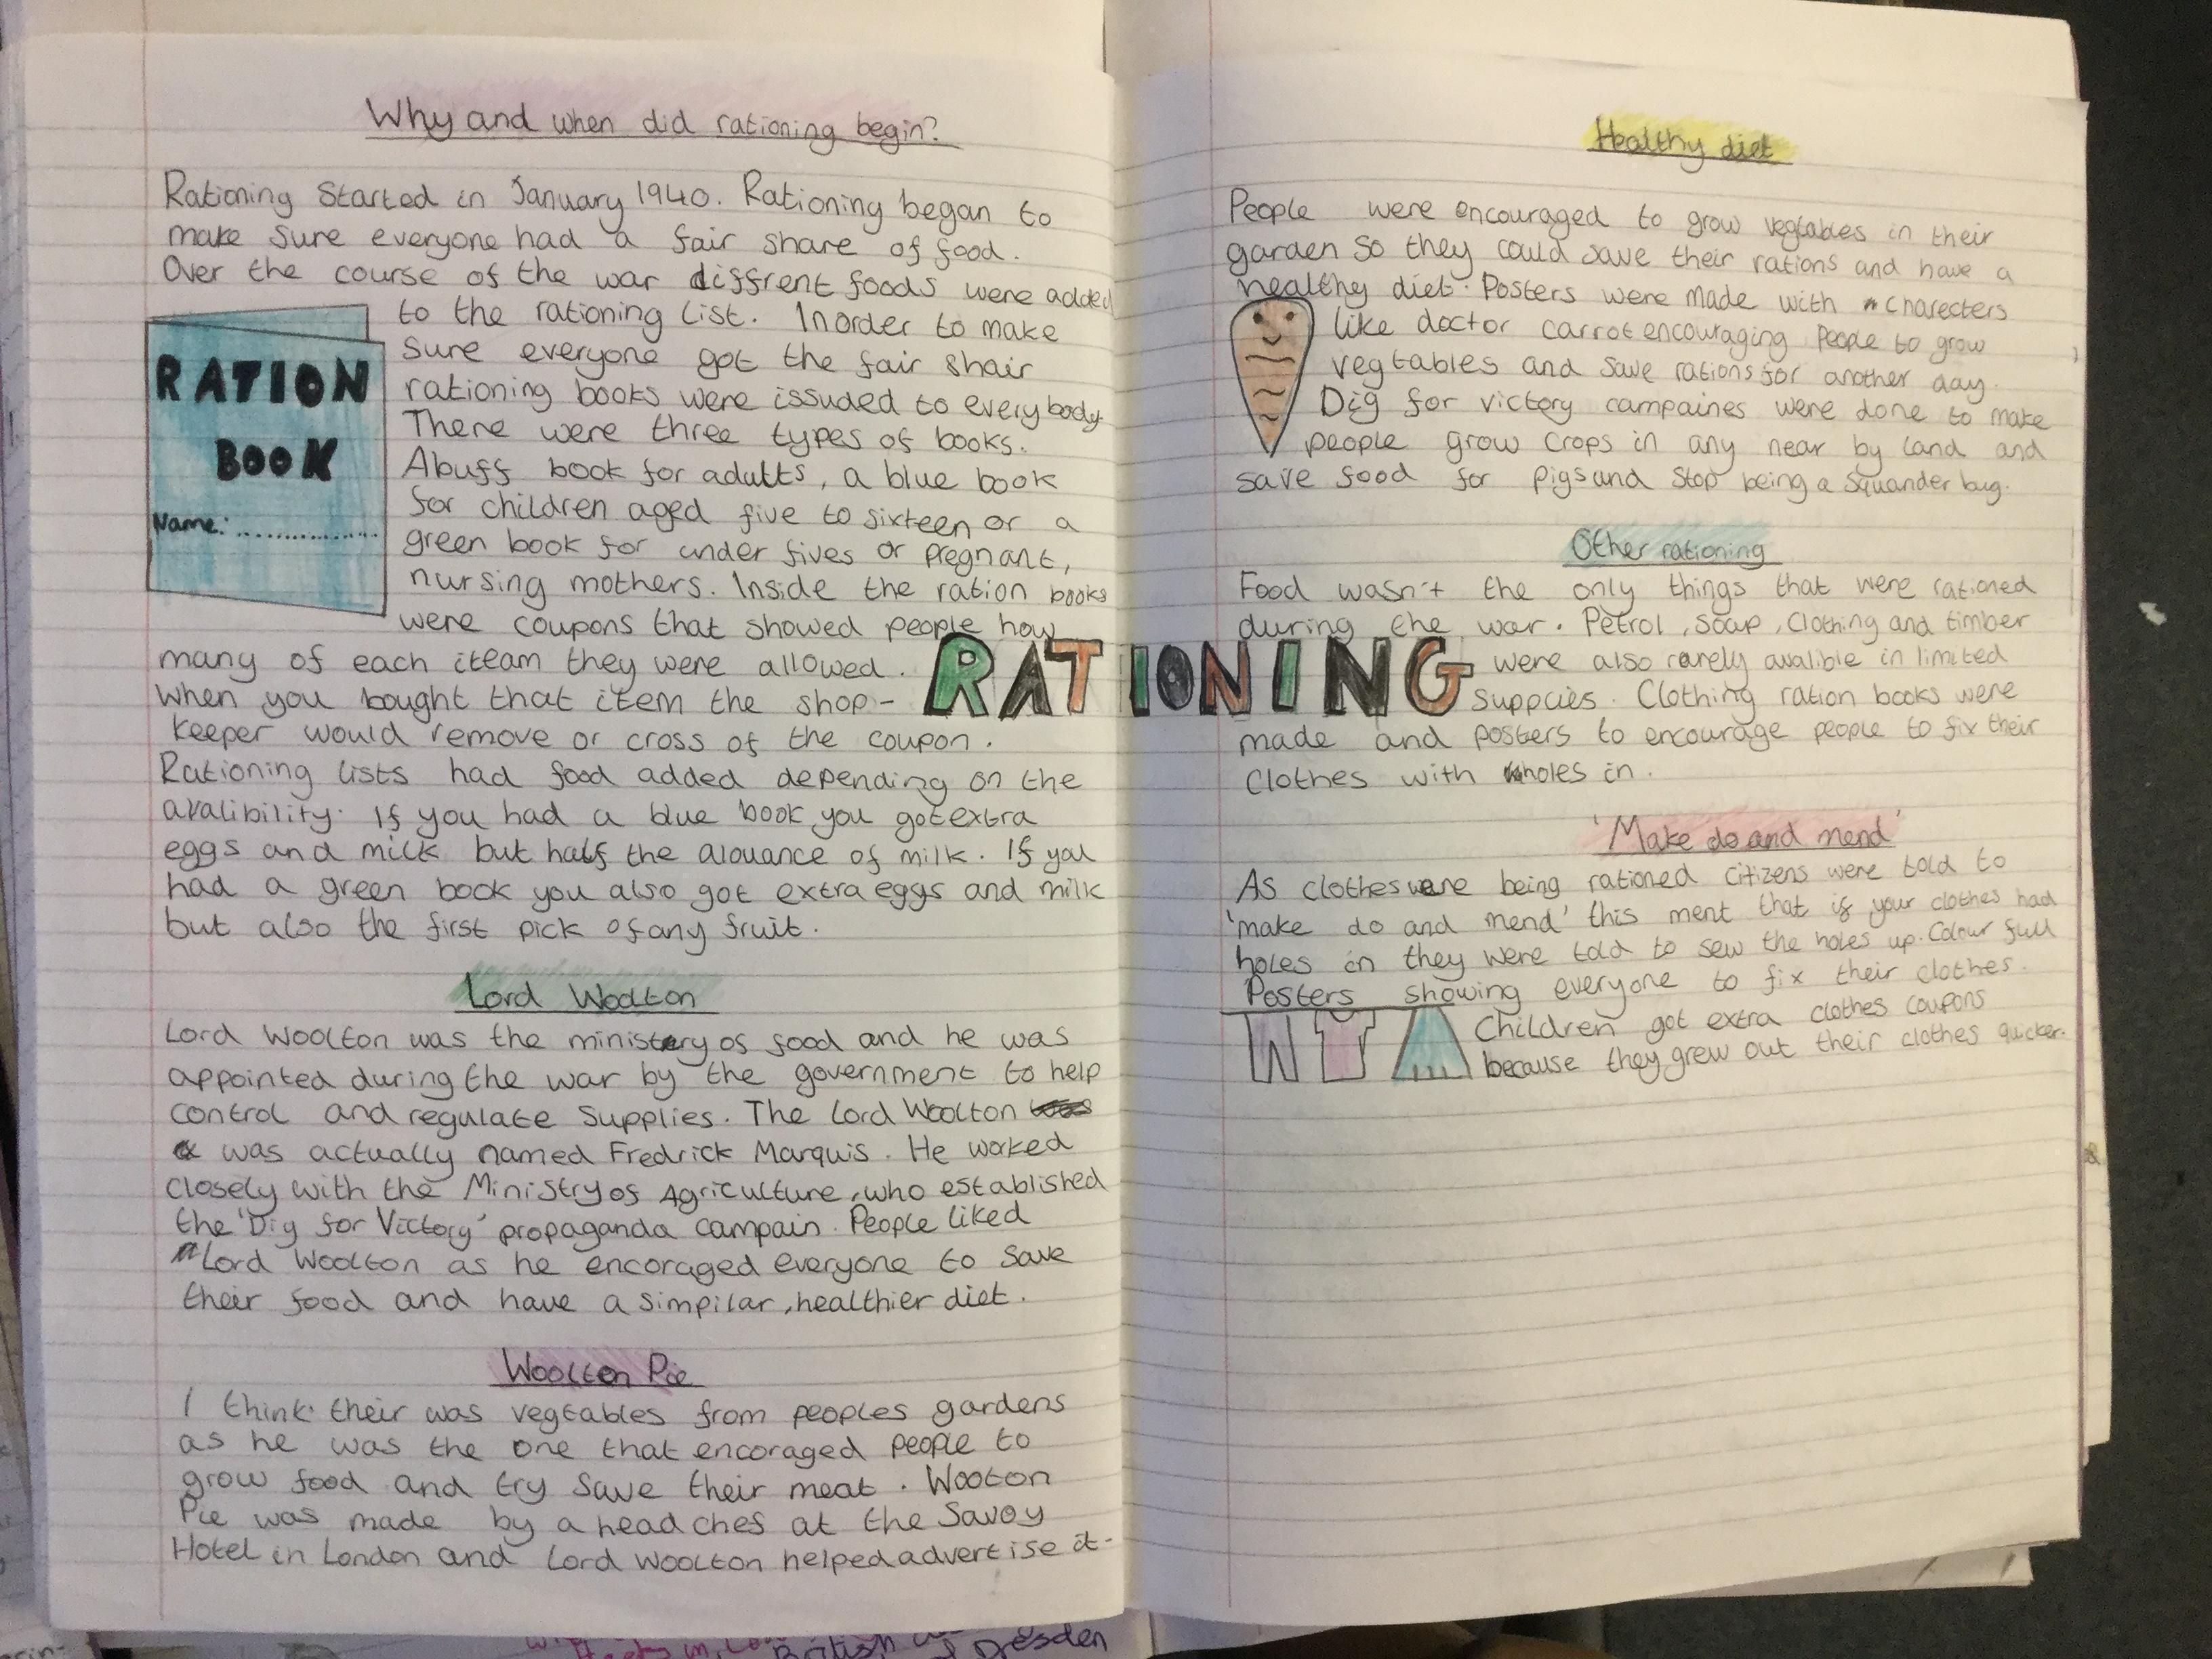 Why and when did rationing begin?
Rationing Started in January 1940. Rationing began to
make sure everyone had a fair share of food.
Over the course of the war diffrent foods were added
to the rationing list. Inorder to make
sure everyone got the fair shair
rationing books were issuded to everybody
There were three types of books.
A buff book for adults, a blue book
for children aged five to sixteen or a
green book for under fives or pregnant,
nursing mothers. Inside the ration books
were coupons that showed people how
many of each iteam they were allowed.
When you bought that item the shop-
keeper would remove or cross of the coupon.
Rationing lists had food added depending on the
avalibility. If you had a blue book you got extra
eggs and milk but half the alouance of milk. If you
had a green book you also got extra eggs and milk
but also the first pick of any fruit.
RATION
BOOK
Name:................
Lord Woolton
Lord Woolton was the ministery of food and he was
appointed during the war by the government to help
control and regulate supplies. The Lord Woolton
was actually named Fredrick Marquis. He worked
closely with the Ministry of Agriculture, who established
the 'Dig for Victory' propaganda campain. People liked
Lord Woolton as he encoraged everyone to save
their food and have a simpilar, healthier diet.
Woolton Pie
I think their was vegtables from peoples gardens
as he was the one that encoraged people to
grow food and try save their meat. Wooton
Pie was made by a head chef at the Savoy
Hotel in London and Lord Woolton helped advertise it.
RATIONING
Healthy diet
People were encouraged to grow vegtables in their
garden so they could save their rations and have a
healthy diet. Posters were made with charecters
like doctor carrot encouraging people to grow
vegtables and save rations for another day.
Dig for victory campaines were done to make
people grow crops in any near by land and
save food for pigs and stop being a Squander bug.
Other rationing
Food wasn't the only things that were rationed
during the war. Petrol, Soap, Clothing and timber
were also rarely avalible in limited
supplies. Clothing ration books were
made and posters to encourage people to fix their
clothes with holes in.
'Make do and mend'
As clothes were being rationed citizens were told to
'make do and mend' this ment that if your clothes had
holes in they were told to sew the holes up. Colour full
Posters showing everyone to fix their clothes.
Children got extra clothes coupons
because they grew out their clothes quicker.
British
Dresden